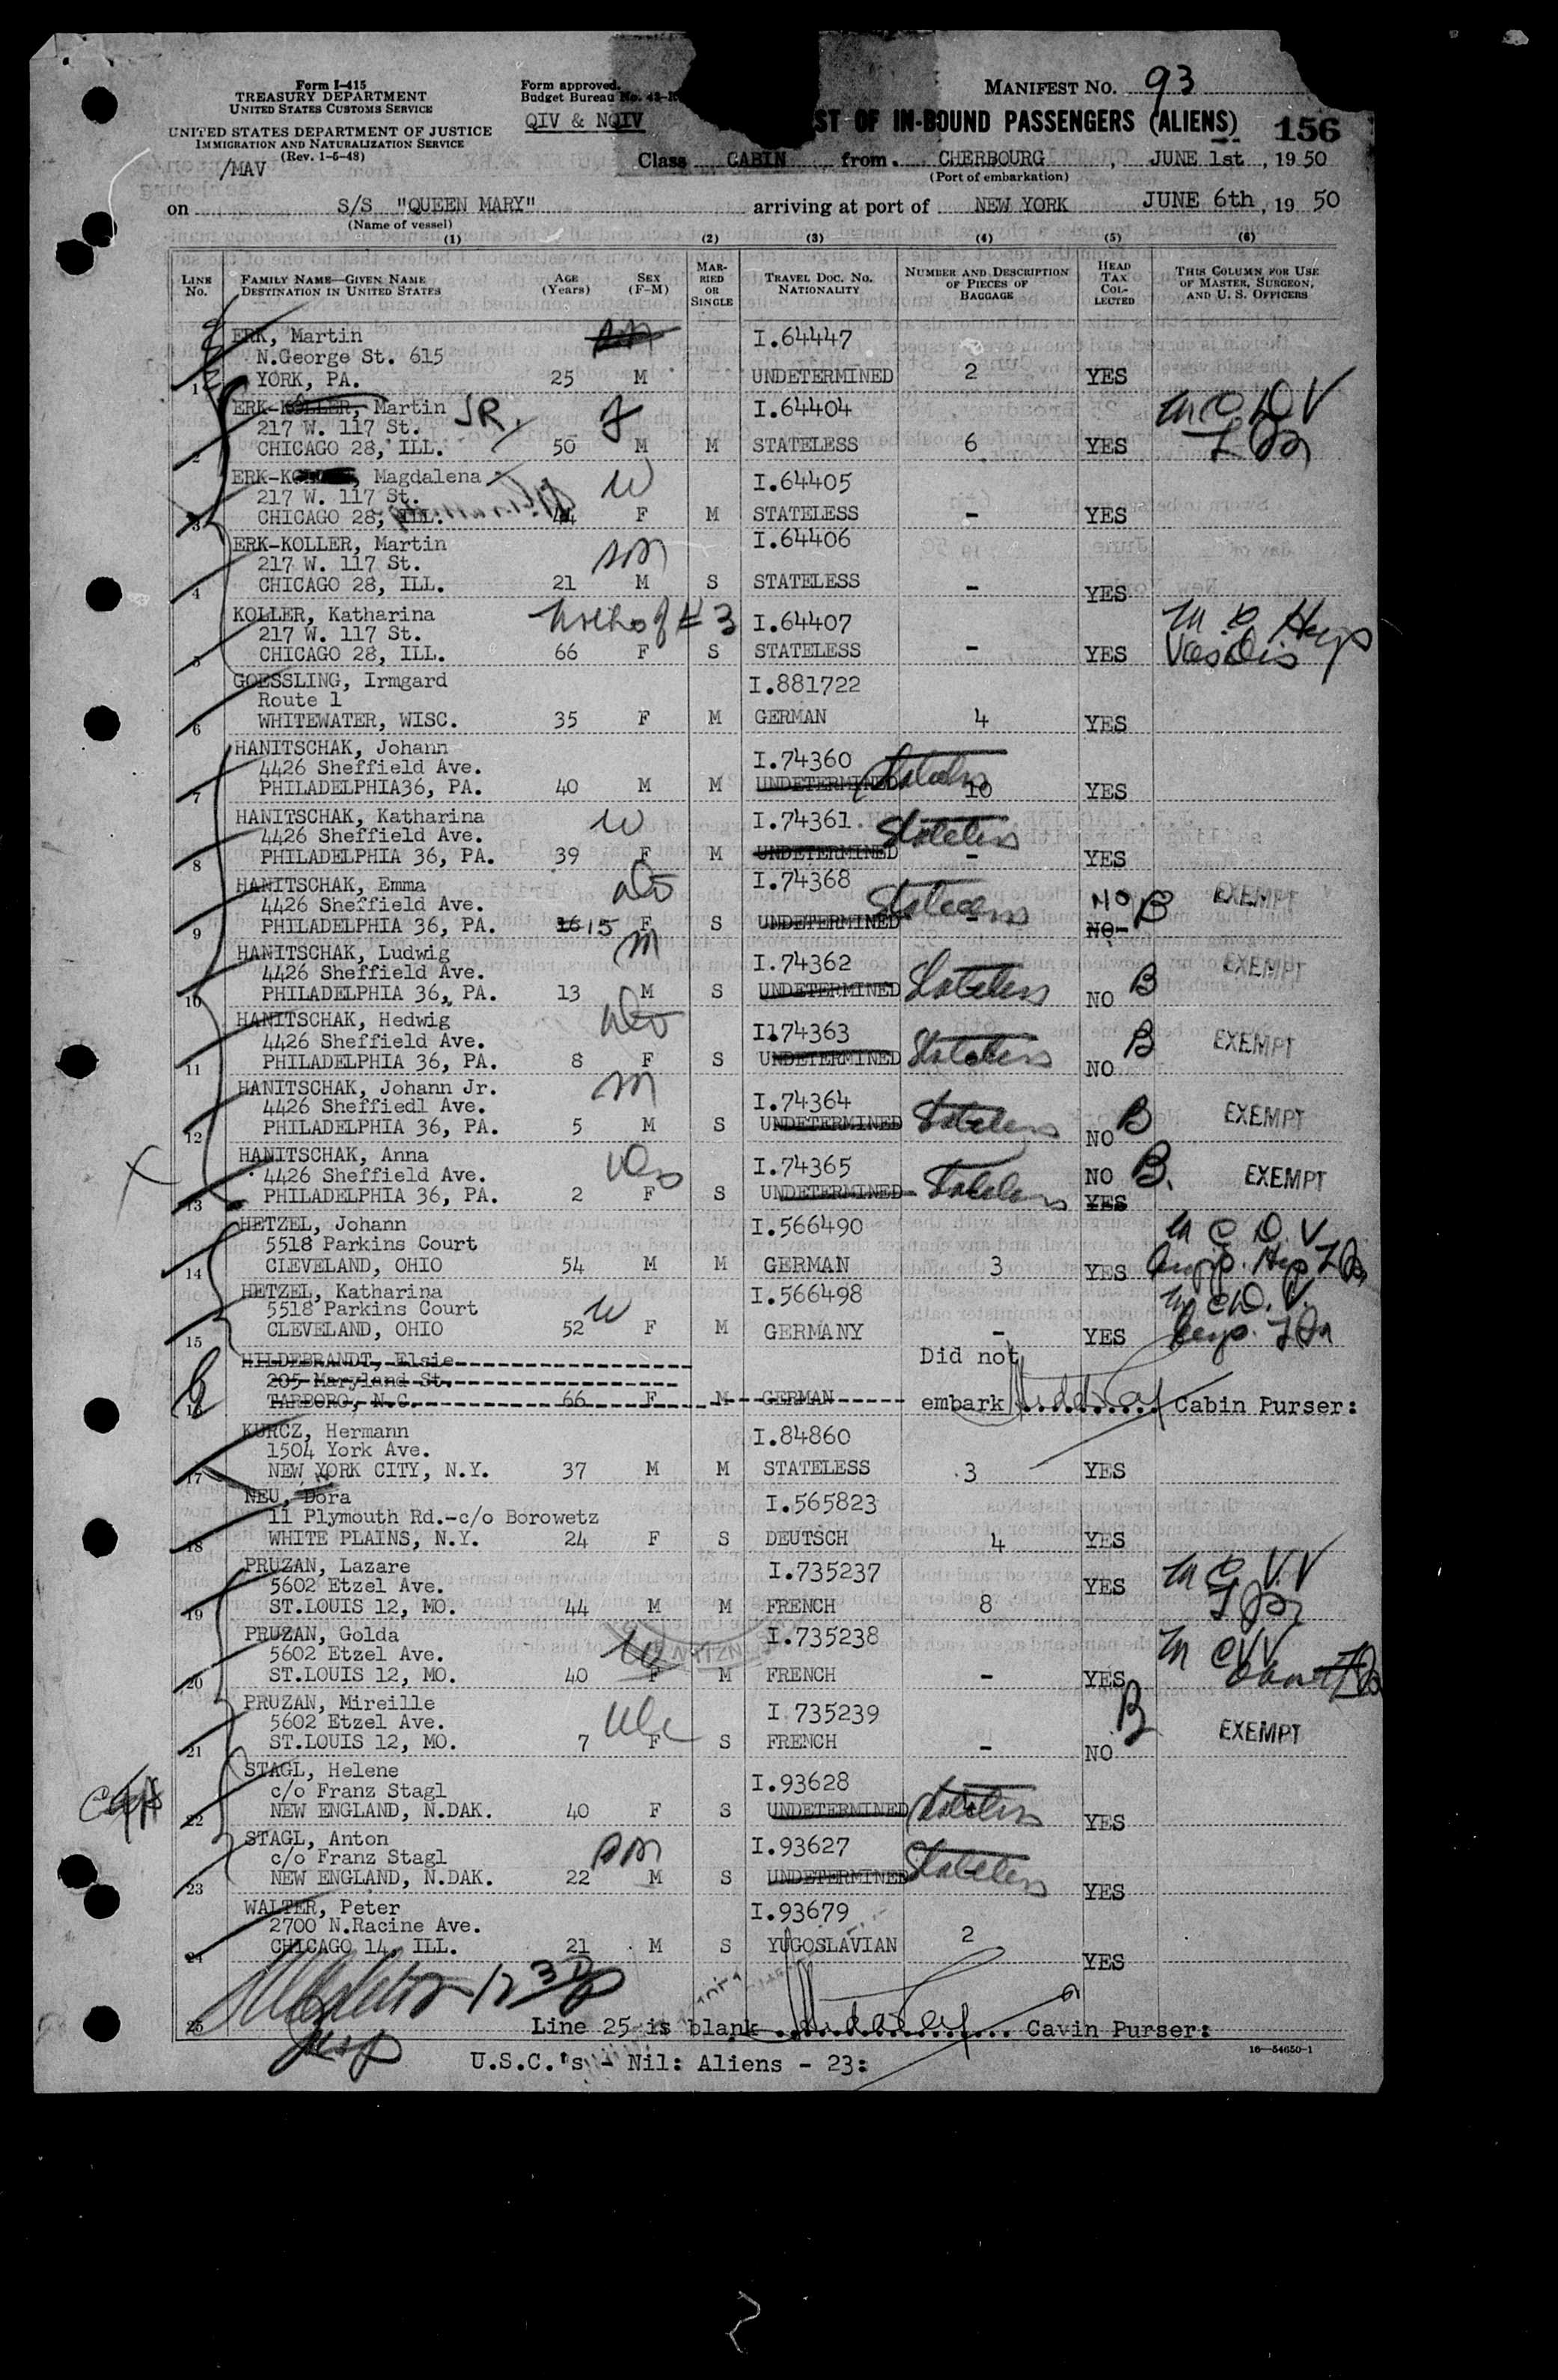 Form I-415
TREASURY DEPARTMENT
UNITED STATES CUSTOMS SERVICE
UNITED STATES DEPARTMENT OF JUSTICE
IMMIGRATION AND NATURALIZATION SERVICE
(Rev. 1-5-48)
/MAV
Form approved.
Budget Bureau No. 43-R
QIV & NQIV
MANIFEST NO. 93
ST OF IN-BOUND PASSENGERS (ALIENS) 156
Class CABIN from CHERBOURG, JUNE 1st, 1950
(Port of embarkation)
on S/S "QUEEN MARY" arriving at port of NEW YORK JUNE 6th, 19 50
(Name of vessel)
(1) (2) (3) (4) (5) (6)
LINE NO. FAMILY NAME—GIVEN NAME DESTINATION IN UNITED STATES AGE (Years) SEX (F-M) MARRIED OR SINGLE TRAVEL DOC. NO. NATIONALITY NUMBER AND DESCRIPTION OF PIECES OF BAGGAGE HEAD TAX COLLECTED THIS COLUMN FOR USE OF MASTER, SURGEON, AND U. S. OFFICERS
ERK, Martin I.64447
N.George St. 615
1 YORK, PA. 25 M UNDETERMINED 2 YES
ERK-KOLLER, Martin JR. I.64404
217 W. 117 St.
2 CHICAGO 28, ILL. 50 M M STATELESS 6 YES
ERK-KOLLER, Magdalena W I.64405
217 W. 117 St.
3 CHICAGO 28, ILL. 44 F M STATELESS - YES
ERK-KOLLER, Martin son I.64406
217 W. 117 St.
4 CHICAGO 28, ILL. 21 M S STATELESS - YES
KOLLER, Katharina # 3 I.64407
217 W. 117 St.
5 CHICAGO 28, ILL. 66 F S STATELESS - YES
GOESSLING, Irmgard I.881722
Route 1
6 WHITEWATER, WISC. 35 F M GERMAN 4 YES
HANITSCHAK, Johann I.74360
4426 Sheffield Ave.
7 PHILADELPHIA36, PA. 40 M M UNDETERMINED Stateless 10 YES
HANITSCHAK, Katharina W I.74361
4426 Sheffield Ave.
8 PHILADELPHIA 36, PA. 39 F M UNDETERMINED Stateless - YES
HANITSCHAK, Emma I.74368 NO B EXEMPT
4426 Sheffield Ave.
9 PHILADELPHIA 36, PA. 16 15 F S UNDETERMINED Stateless - NO
HANITSCHAK, Ludwig I.74362 EXEMPT
4426 Sheffield Ave.
10 PHILADELPHIA 36, PA. 13 M S UNDETERMINED Stateless NO B
HANITSCHAK, Hedwig I174363
4426 Sheffield Ave.
11 PHILADELPHIA 36, PA. 8 F S UNDETERMINED Stateless NO B EXEMPT
HANITSCHAK, Johann Jr. I.74364
4426 Sheffiedl Ave.
12 PHILADELPHIA 36, PA. 5 M S UNDETERMINED Stateless NO B EXEMPT
HANITSCHAK, Anna I.74365 NO B. EXEMPT
4426 Sheffield Ave.
13 PHILADELPHIA 36, PA. 2 F S UNDETERMINED Stateless YES
HETZEL, Johann I.566490
5518 Parkins Court
14 CLEVELAND, OHIO 54 M M GERMAN 3 YES
HETZEL, Katharina W I.566498
5518 Parkins Court
15 CLEVELAND, OHIO 52 F M GERMANY - YES
HILDEBRANDT, Elsie Did not
205 Maryland St.
TARBORO, N.C. 66 F M GERMAN embark Cabin Purser:
KURCZ, Hermann I.84860
1504 York Ave.
17 NEW YORK CITY, N.Y. 37 M M STATELESS 3 YES
NEU, Dora I.565823
11 Plymouth Rd.-c/o Borowetz
18 WHITE PLAINS, N.Y. 24 F S DEUTSCH 4 YES
PRUZAN, Lazare I.735237
5602 Etzel Ave.
19 ST.LOUIS 12, MO. 44 M M FRENCH 8 YES
PRUZAN, Golda I.735238
5602 Etzel Ave.
20 ST.LOUIS 12, MO. 40 F M FRENCH - YES
PRUZAN, Mireille I 735239
5602 Etzel Ave.
21 ST.LOUIS 12, MO. 7 F S FRENCH - NO B EXEMPT
STAGL, Helene I.93628
c/o Franz Stagl
22 NEW ENGLAND, N.DAK. 40 F S UNDETERMINED Stateless YES
STAGL, Anton son I.93627
c/o Franz Stagl
23 NEW ENGLAND, N.DAK. 22 M S UNDETERMINED Stateless YES
WALTER, Peter I.93679
2700 N.Racine Ave.
24 CHICAGO 14, ILL. 21 M S YUGOSLAVIAN 2 YES
25 Line 25 is blank Cavin Purser:
U.S.C.'s - Nil: Aliens - 23:
16—54650-1